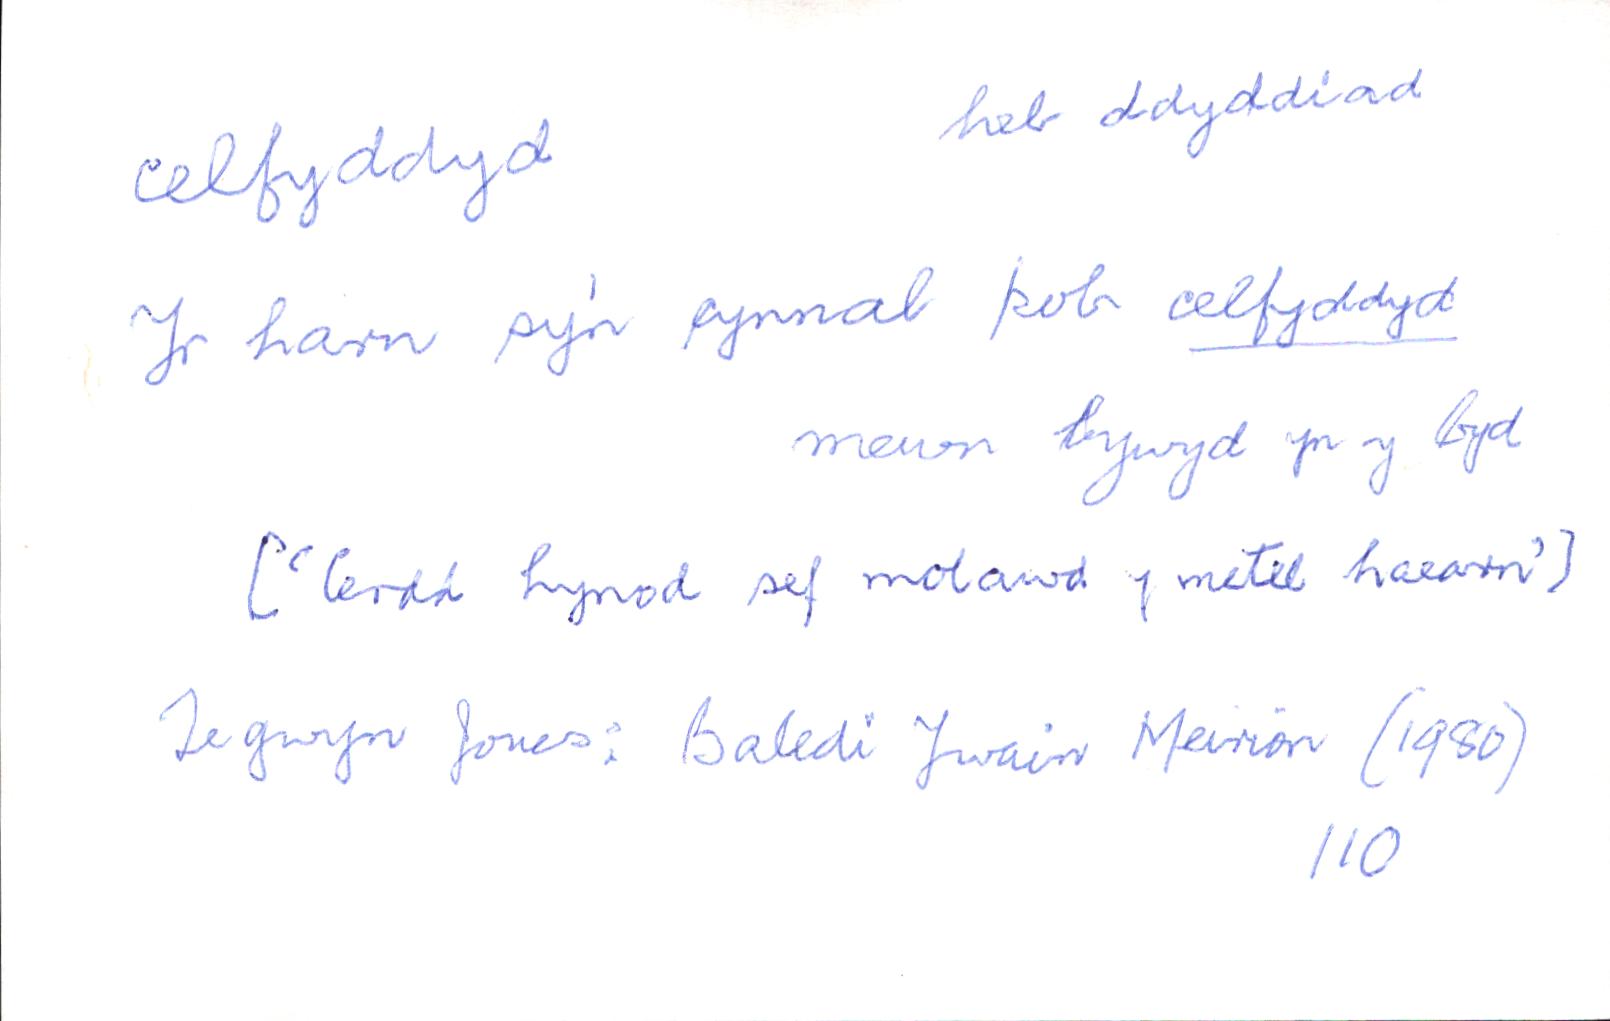 heb ddyddiad
celfyddyd
Yr harn sy'n cynnal pob celfyddyd
mewn bywyd yn y byd
[‘Cerdd hynod sef molawd y metel haearn’]
Tegwyn Jones: Baledi Ywain Meirion (1980)
110